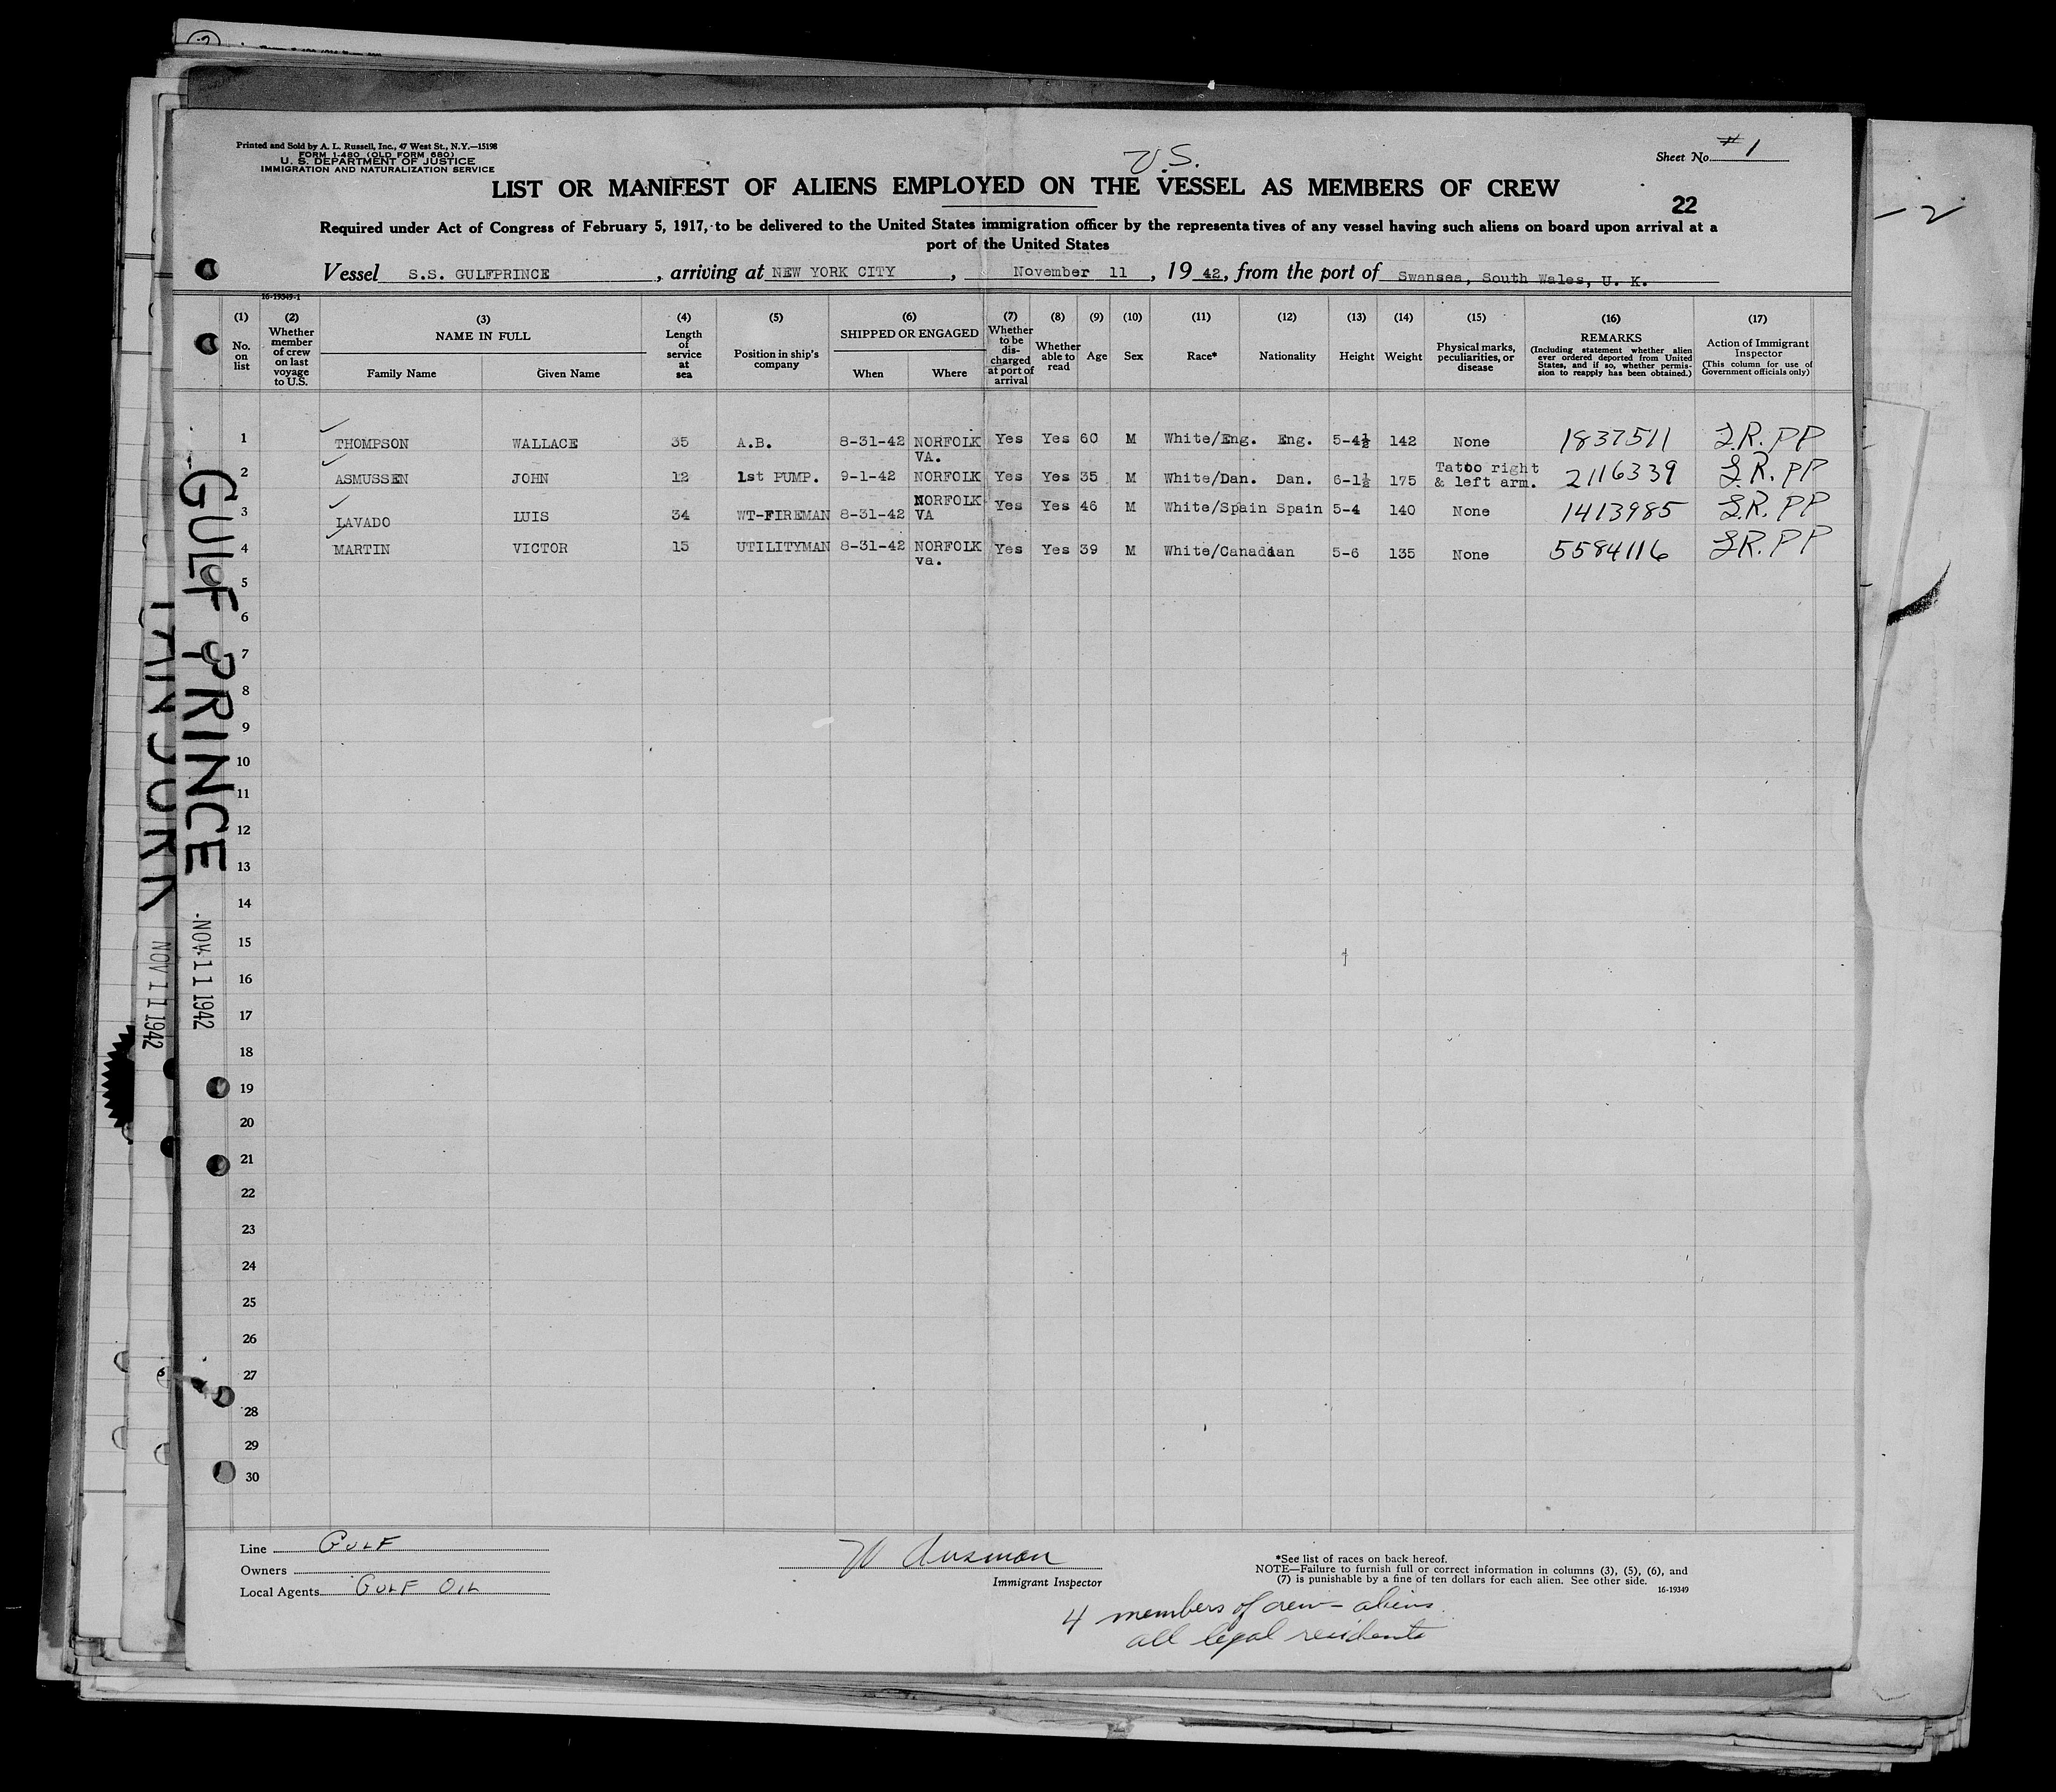 Printed and Sold by A. L. Russell, Inc., 47 West St., N.Y.—15198
FORM I-480 (OLD FORM 680)
U. S. DEPARTMENT OF JUSTICE
IMMIGRATION AND NATURALIZATION SERVICE
U.S.
Sheet No. #1
LIST OR MANIFEST OF ALIENS EMPLOYED ON THE VESSEL AS MEMBERS OF CREW
22
Required under Act of Congress of February 5, 1917, to be delivered to the United States immigration officer by the representatives of any vessel having such aliens on board upon arrival at a
port of the United States
Vessel S.S. GULFPRINCE, arriving at NEW YORK CITY, November 11, 19 42, from the port of Swansea, South Wales, U. K.
16-19349-1
(1) No. on list
(2) Whether member of crew on last voyage to U.S.
(3) NAME IN FULL Family Name Given Name
(4) Length of service at sea
(5) Position in ship's company
(6) SHIPPED OR ENGAGED When Where
(7) Whether to be dis-charged at port of arrival
(8) Whether able to read
(9) Age
(10) Sex
(11) Race*
(12) Nationality
(13) Height
(14) Weight
(15) Physical marks, peculiarities, or disease
(16) REMARKS (Including statement whether alien ever ordered deported from United States, and if so, whether permis-sion to reapply has been obtained.)
(17) Action of Immigrant Inspector (This column for use of Government officials only)
1 THOMPSON WALLACE 35 A.B. 8-31-42 NORFOLK VA. Yes Yes 60 M White/Eng. Eng. 5-4½ 142 None 1837511 L.R. PP
2 ASMUSSEN JOHN 12 1st PUMP. 9-1-42 NORFOLK Yes Yes 35 M White/Dan. Dan. 6-1½ 175 Tattoo right & left arm. 2116339 L.R. PP
3 LAVADO LUIS 34 WT-FIREMAN 8-31-42 NORFOLK VA Yes Yes 46 M White/Spain Spain 5-4 140 None 1413985 L.R. PP
4 MARTIN VICTOR 15 UTILITYMAN 8-31-42 NORFOLK va. Yes Yes 39 M White/Canadian 5-6 135 None 5584116 L.R. PP
5
6
7
8
9
10
11
12
13
14
15
16
17
18
19
20
21
22
23
24
25
26
27
28
29
30
GULF PRINCE
NOV 11 1942
NOV 11 1942
Line GULF
Owners
Local Agents GULF OIL
Immigrant Inspector
*See list of races on back hereof.
NOTE—Failure to furnish full or correct information in columns (3), (5), (6), and
(7) is punishable by a fine of ten dollars for each alien. See other side.
16-19349
4 members of crew - aliens
all legal residents